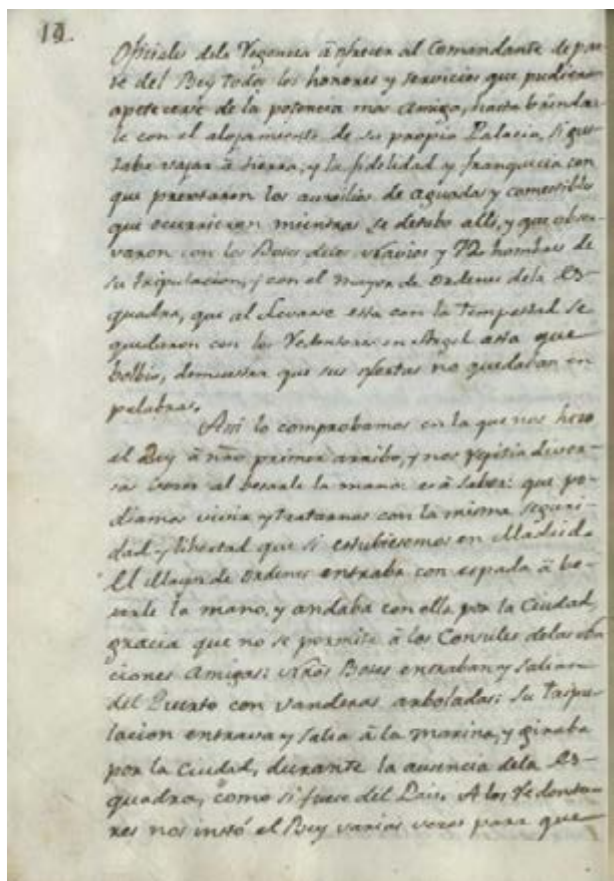 12.
Oficiales dela Regencia à ofrecer al Comandante de par-
te del Rey todos los honores y servicios que pudieran
apetecerse de la potencia mas amiga, hasta brindar-
le con el alojamiento de su propio Palacio, si gus-
taba bajar à tierra, y la fidelidad y franqueza con
que prestaron los auxilios de aguada y comestibles
que ocurrieron mientras se detubo alli, y que obser-
varon con los Botes delos Navios y 72 hombres de
su tripulacion, y con el mayor de ordenes dela Es-
quadra, que al levarse esta con la tempestad se
quedaron con los Redentores en Argel asta que
bolbio, demuestra que sus ofertas no quedaban en
palabras.
Asi lo comprobamos en la que nos hizo
el Rey à nro primer arribo, y nos repitia diver-
sas veces al besarle la mano: es à saber: que po-
diamos vivir y tratarnos con la misma seguri-
dad y libertad que si estubiesemos en Madrid.
El Mayor de ordenes entraba con espada à be-
sarle la mano, y andaba con ella por la Ciudad,
gracia que no se permite à los Consules delas Na-
ciones Amigas: nros Botes entraban y salian
del Puerto con vanderas arboladas: su tripu-
lacion entrava y salia à la marina, y giraba
por la Ciudad, durante la ausencia dela Es-
quadra, como si fuese del Pais. A los Redento-
res nos instó el Rey varias veces para que